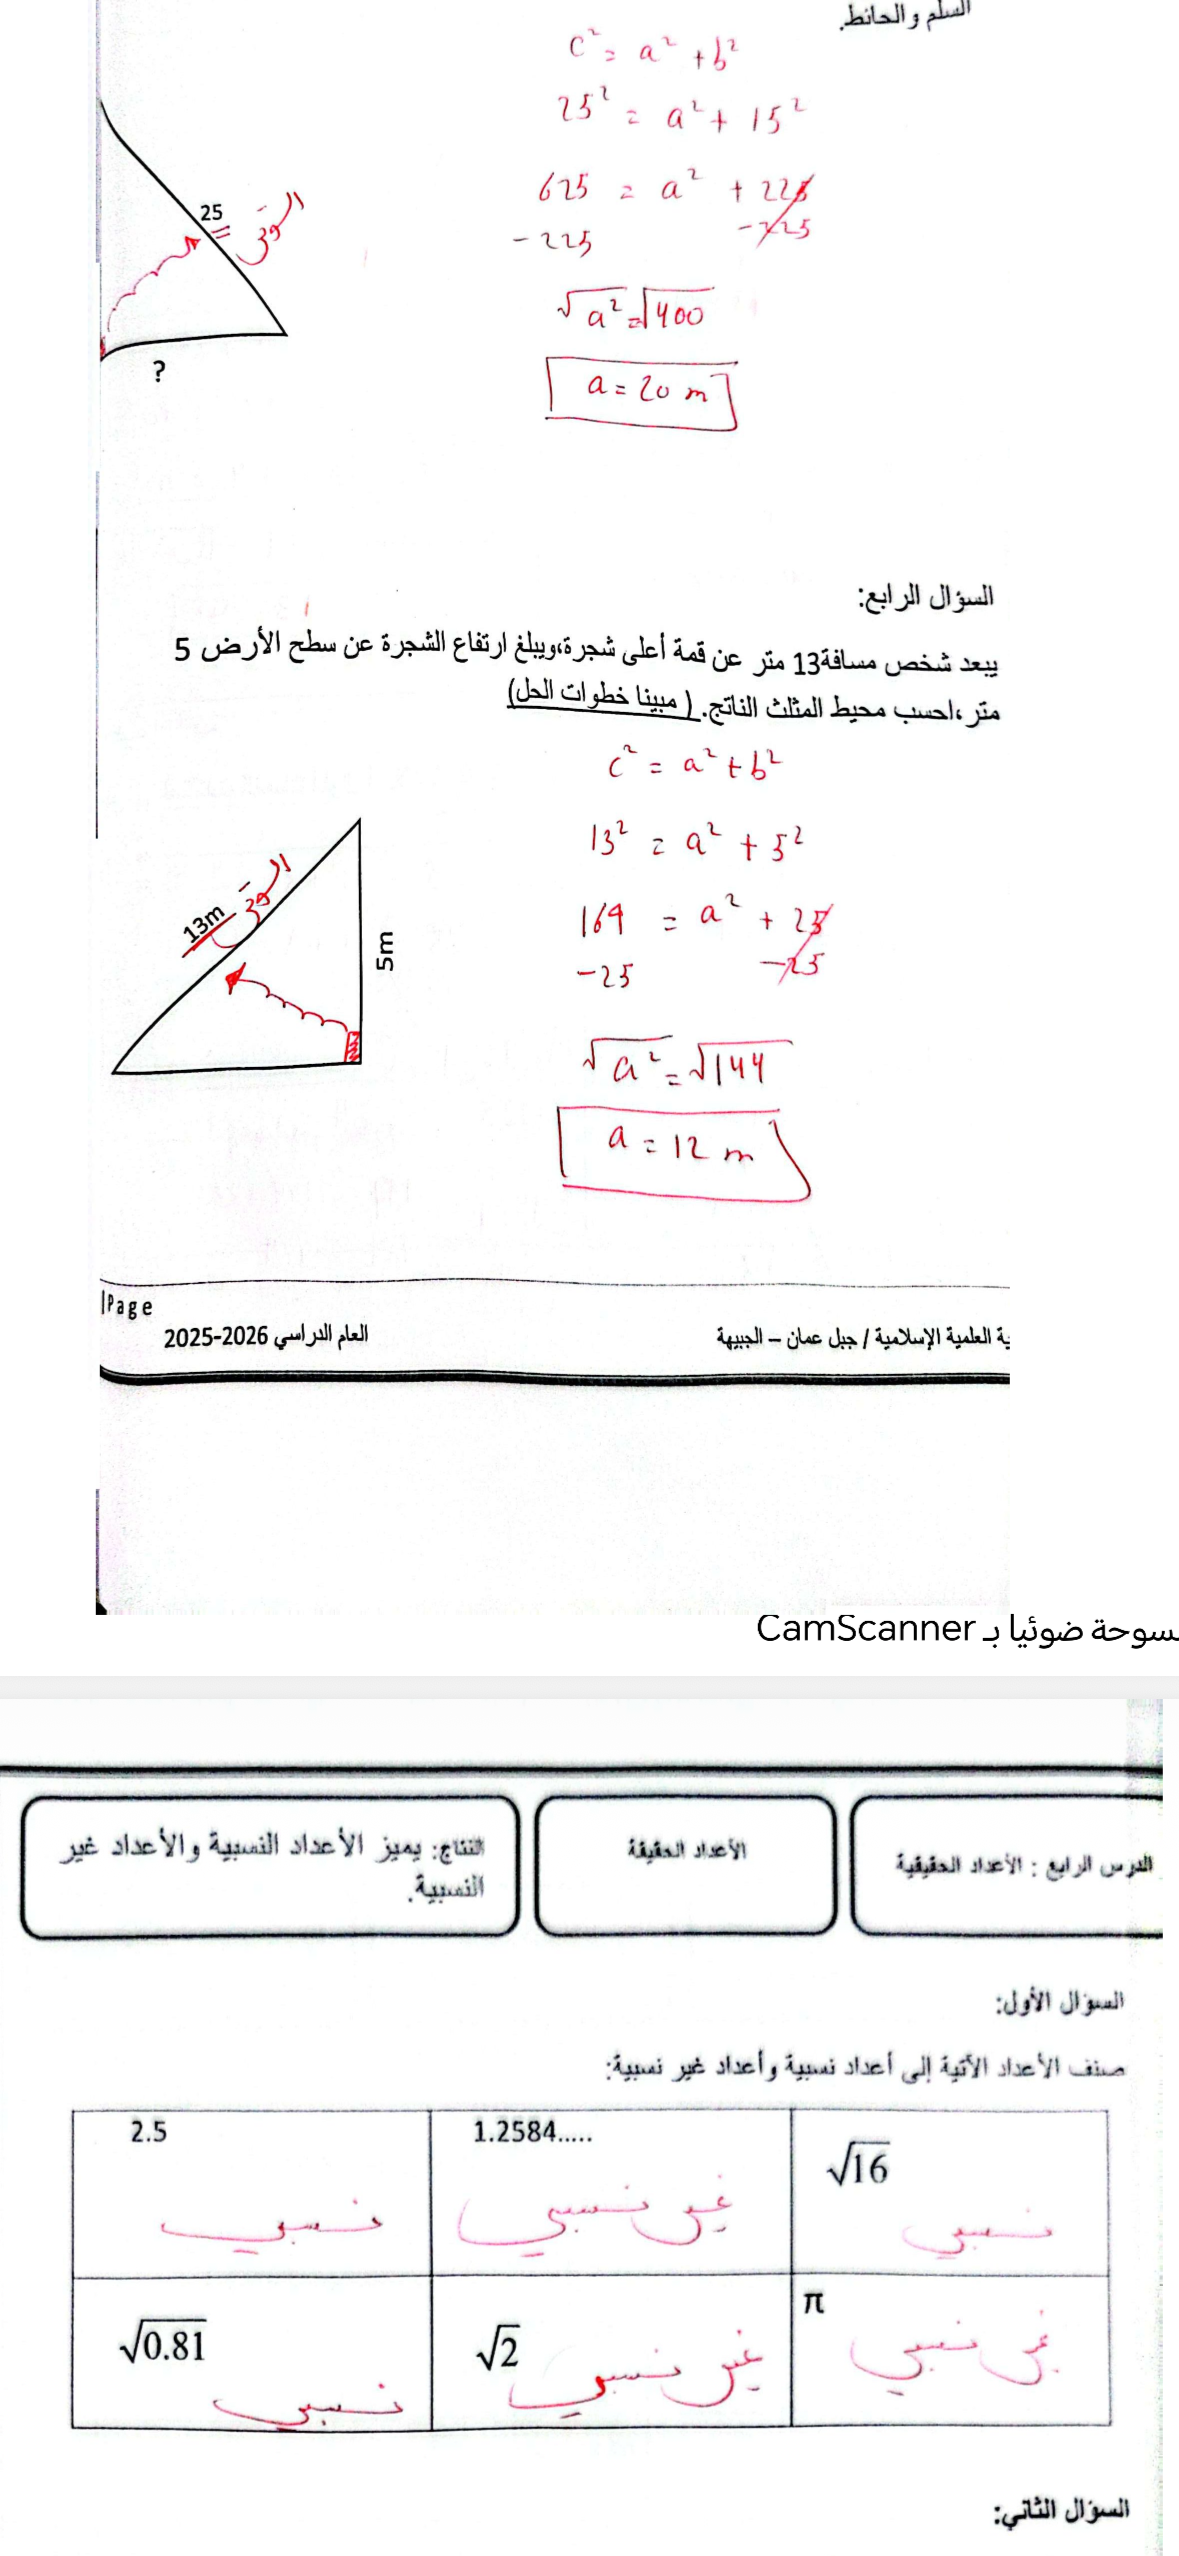 السلم والحائط.
c² = a² + b²
25² = a² + 15²
625 = a² + 225
-225 -225
√a² = √400
a = 20 m
25
الوتر
?
السؤال الرابع:
يبعد شخص مسافة13 متر عن قمة أعلى شجرة،ويبلغ ارتفاع الشجرة عن سطح الأرض 5
متر ،احسب محيط المثلث الناتج. ( مبينا خطوات الحل)
c² = a² + b²
13² = a² + 5²
169 = a² + 25
-25 -25
√a² = √144
a = 12 m
13m
الوتر
5m
|Page
ية العلمية الإسلامية / جبل عمان – الجبيهة
العام الدراسي 2025-2026
سوحة ضوئيا بـ CamScanner
الدرس الرابع : الأعداد الحقيقية
الأعداد الحقيقة
النتاج: يميز الأعداد النسبية والأعداد غير
النسبية.
السؤال الأول:
صنف الأعداد الآتية إلى أعداد نسبية وأعداد غير نسبية:
√16
نسبي
1.2584.....
غير نسبي
2.5
نسبي
π
غير نسبي
√2
غير نسبي
√0.81
نسبي
السؤال الثاني: